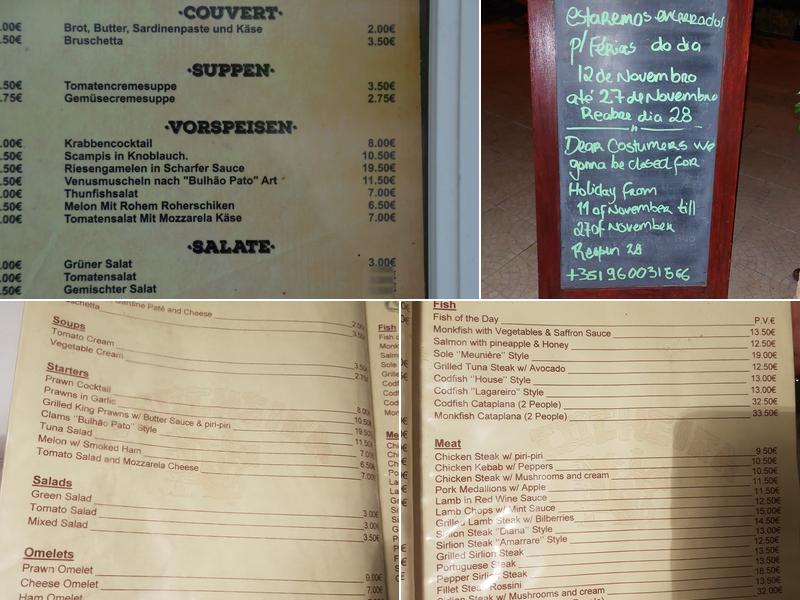 ·COUVERT·
Brot, Butter, Sardinenpaste und Käse 2.00€
.50€ Bruschetta 3.50€
·SUPPEN·
.50€ Tomatencremesuppe 3.50€
.75€ Gemüsecremesuppe 2.75€
·VORSPEISEN·
.00€ Krabbencocktail 8.00€
.50€ Scampis in Knoblauch. 10.50€
.50€ Riesengamelen in Scharfer Sauce 19.50€
.50€ Venusmuscheln nach "Bulhão Pato" Art 11.50€
.00€ Thunfishsalat 7.00€
.50€ Melon Mit Rohem Roherschiken 6.50€
.00€ Tomatensalat Mit Mozzarela Käse 7.00€
·SALATE·
.00€ Grüner Salat 3.00€
.00€ Tomatensalat
.50€ Gemischter Salat
estaremos encerrador
p/ Férias do dia
12 de Novembro
até 27 de Novembro
Reabre dia 28
Dear Costumers we
gonna be closed for
Holiday from
11 of November till
27 of November
Reopen 28
+351 960031566
Sardine Paté and Cheese 2.00
Bruschetta 3.50
Soups
Tomato Cream 3.50
Vegetable Cream 2.75
Starters
Prawn Cocktail 8.00
Prawns in Garlic 10.50
Grilled King Prawns w/ Butter Sauce & piri-piri 19.50
Clams "Bulhão Pato" Style 11.50
Tuna Salad 7.00
Melon w/ Smoked Ham 6.50
Tomato Salad and Mozzarela Cheese 7.00
Salads
Green Salad 3.00
Tomato Salad 3.00
Mixed Salad 3.50
Omelets
Prawn Omelet 9.00€
Cheese Omelet 7.00€
Ham Omelet
Fish
Fish
Fish of the Day P.V.€
Monkfish with Vegetables & Saffron Sauce 13.50€
Salmon with pineapple & Honey 12.50€
Sole "Meunière" Style 19.00€
Grilled Tuna Steak w/ Avocado 12.50€
Codfish "House" Style 13.00€
Codfish "Lagareiro" Style 13.00€
Codfish Cataplana (2 People) 32.50€
Monkfish Cataplana (2 People) 33.50€
Meat
Chicken Steak w/ piri-piri 9.50€
Chicken Kebab w/ Peppers 10.50€
Chicken Steak w/ Mushrooms and cream 10.50€
Pork Medallions w/ Apple 11.50€
Lamb in Red Wine Sauce 12.50€
Lamb Chops w/ Mint Sauce 15.00€
Grilled Lamb Steak w/ Bilberries 14.50€
Sirlion Steak "Diana" Style 13.50€
Sirlion Steak "Amarrare" Style 12.50€
Grilled Sirlion Steak 13.50€
Portuguese Steak 13.50€
Pepper Sirlion Steak 18.50€
Fillet Steak Rossini 13.50€
Sirlion Steak w/ Mushrooms and cream 32.00€